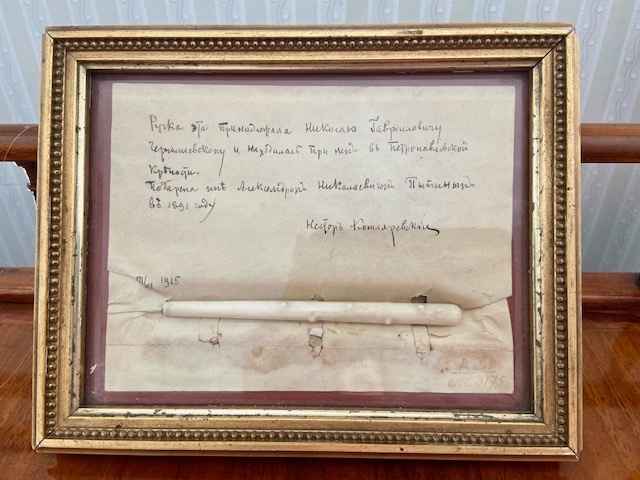 Ручка эта принадлежала Николаю Гавриловичу
Чернышевскому и находилась при немъ въ Петропавловской
Крѣпости.
Подарена мнѣ Александромъ Николаевичемъ Пыпинымъ
въ 1891 году
Несторъ Котляревскій
1915